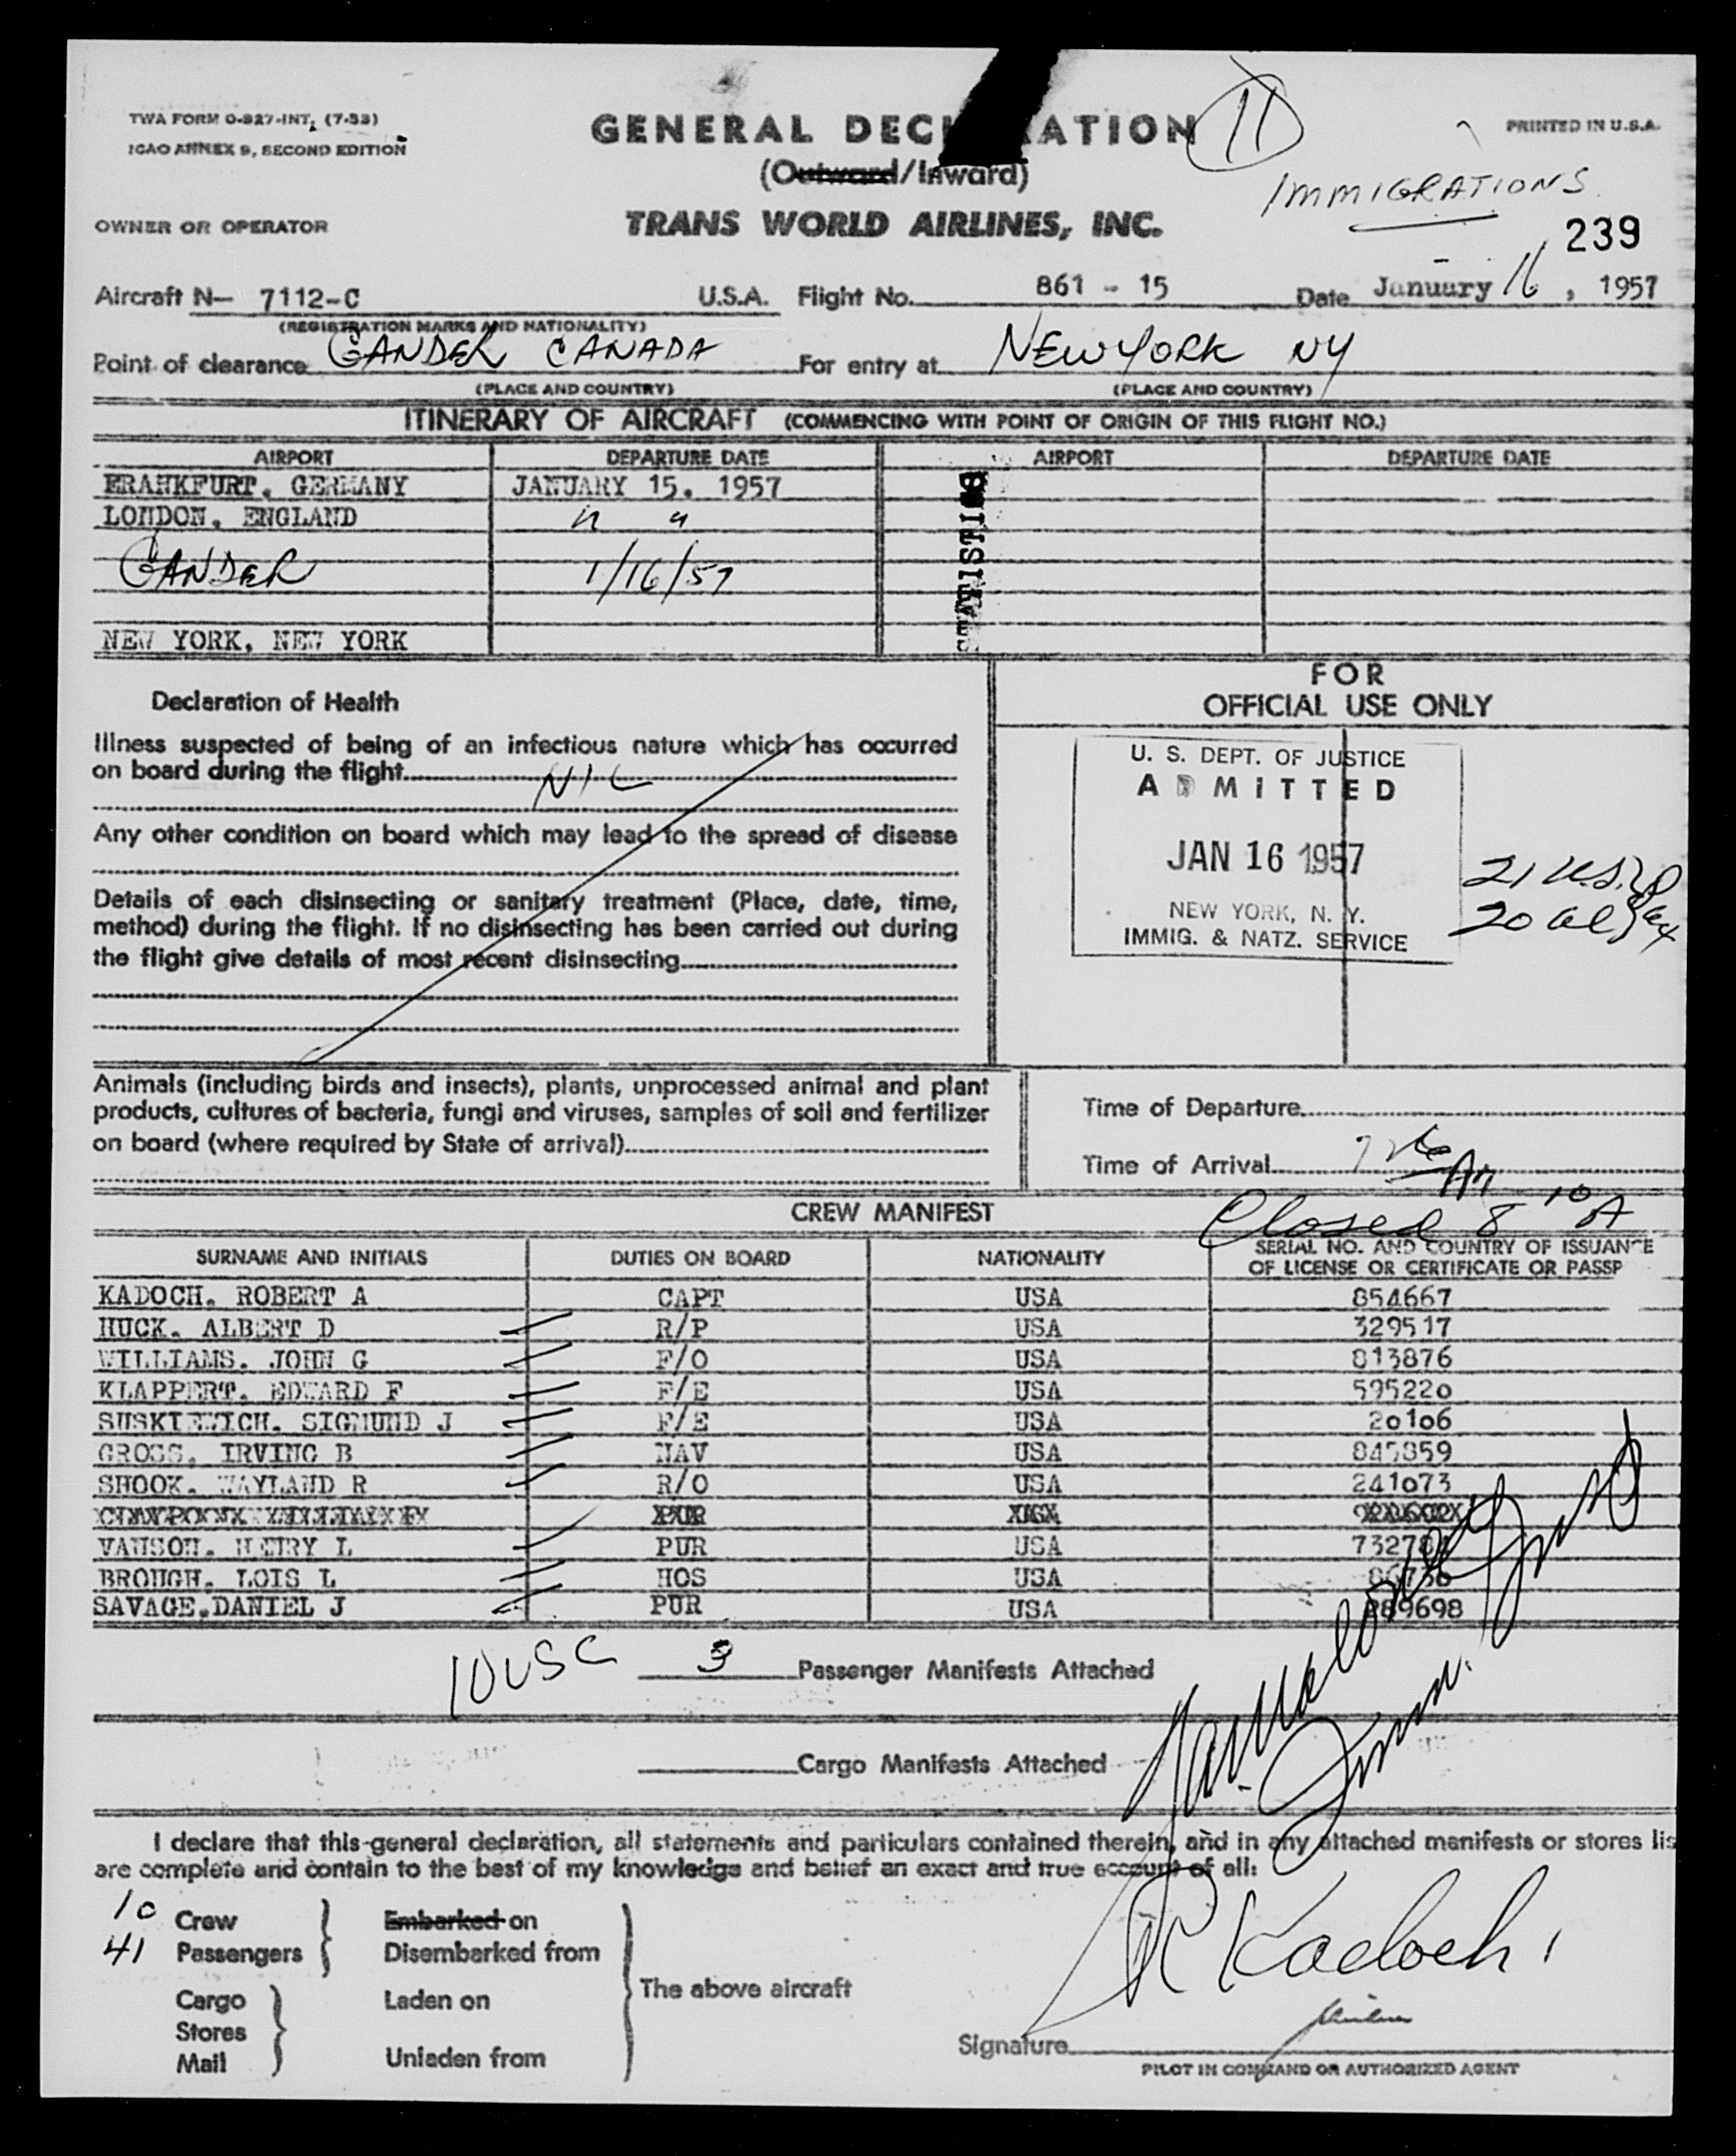 TWA FORM O-827-INT, (7-53)
ICAO ANNEX 9, SECOND EDITION
GENERAL DEC ATION
11
PRINTED IN U.S.A.
(Outward/Inward)
IMMIGRATIONS
OWNER OR OPERATOR
TRANS WORLD AIRLINES, INC.
239
Aircraft N- 7112-C U.S.A. Flight No. 861 - 15 Date January 16, 1957
(REGISTRATION MARKS AND NATIONALITY)
Point of clearance GANDER CANADA For entry at NEW YORK NY
(PLACE AND COUNTRY) (PLACE AND COUNTRY)
ITINERARY OF AIRCRAFT (COMMENCING WITH POINT OF ORIGIN OF THIS FLIGHT NO.)
AIRPORT DEPARTURE DATE AIRPORT DEPARTURE DATE
FRANKFURT, GERMANY JANUARY 15, 1957
LONDON, ENGLAND " "
GANDER 1/16/57
NEW YORK, NEW YORK
FOR
OFFICIAL USE ONLY
Declaration of Health
Illness suspected of being of an infectious nature which has occurred
on board during the flight NIL
Any other condition on board which may lead to the spread of disease
Details of each disinsecting or sanitary treatment (Place, date, time,
method) during the flight. If no disinsecting has been carried out during
the flight give details of most recent disinsecting
U. S. DEPT. OF JUSTICE
ADMITTED
JAN 16 1957
NEW YORK, N. Y.
IMMIG. & NATZ. SERVICE
21 U.S.
20 al
Animals (including birds and insects), plants, unprocessed animal and plant
products, cultures of bacteria, fungi and viruses, samples of soil and fertilizer
on board (where required by State of arrival)
Time of Departure
Time of Arrival AM
Closed 8 10 A
CREW MANIFEST
SURNAME AND INITIALS DUTIES ON BOARD NATIONALITY SERIAL NO. AND COUNTRY OF ISSUANCE
OF LICENSE OR CERTIFICATE OR PASSP
KADOCH, ROBERT A CAPT USA 854667
HUCK, ALBERT D R/P USA 329517
WILLIAMS, JOHN G F/O USA 813876
KLAPPERT, EDWARD F F/E USA 595220
SUSKIEWICH, SIGMUND J F/E USA 20106
GROSS, IRVING B NAV USA
SHOOK, WAYLAND R R/O USA 241073
PUR
VANSON, HENRY L PUR USA
BROUGH, LOIS L HOS USA 86736
SAVAGE, DANIEL J PUR USA 289698
10 USC 3 Passenger Manifests Attached
Cargo Manifests Attached
I declare that this general declaration, all statements and particulars contained therein, and in any attached manifests or stores lis
are complete and contain to the best of my knowledge and belief an exact and true account of all:
10 Crew Embarked on
41 Passengers Disembarked from
The above aircraft
Cargo Laden on
Stores
Mail Unladen from
R Kadoch
Signature
PILOT IN COMMAND OR AUTHORIZED AGENT